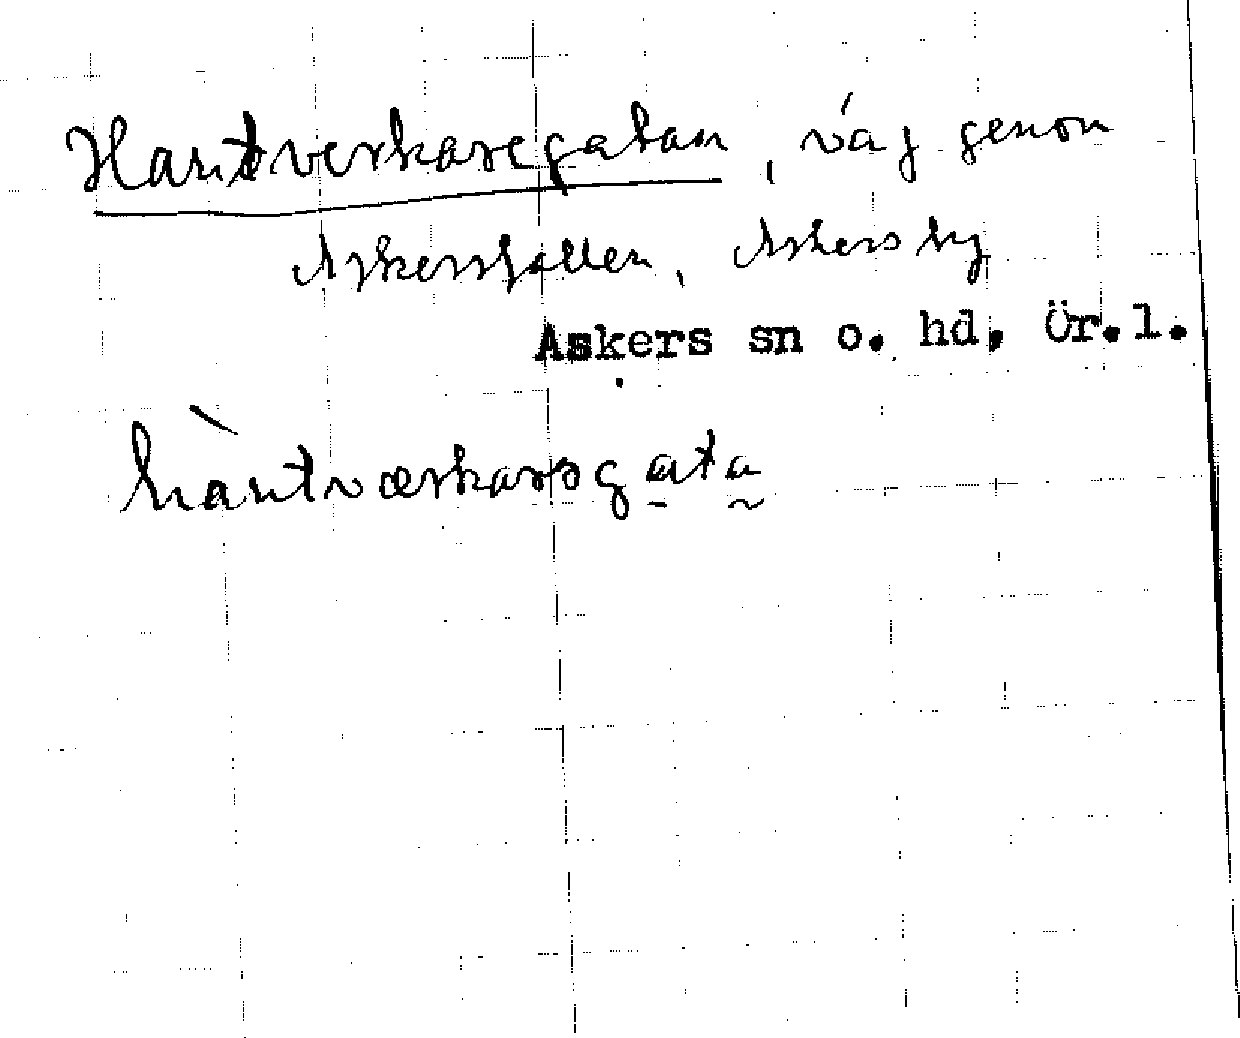 Hantverkaregatan, väg genom
Askershallen, Askers by
Askers sn o. hd. Ör.l.
hàntværkarəgata